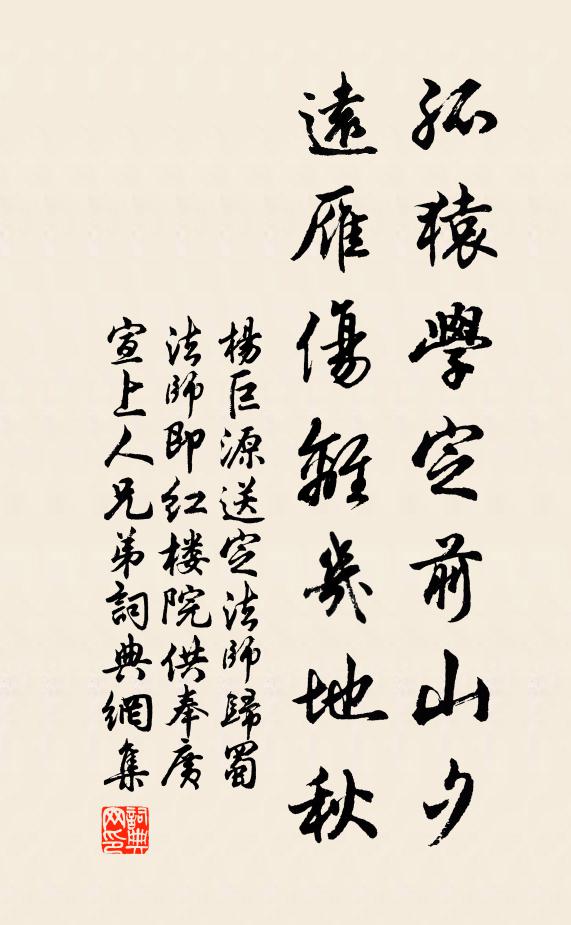 孤猿學定前山夕
遠雁傷離幾地秋
楊巨源送定法師歸蜀
法師即紅樓院供奉廣
宣上人兄弟詞典網集
詞典
网印